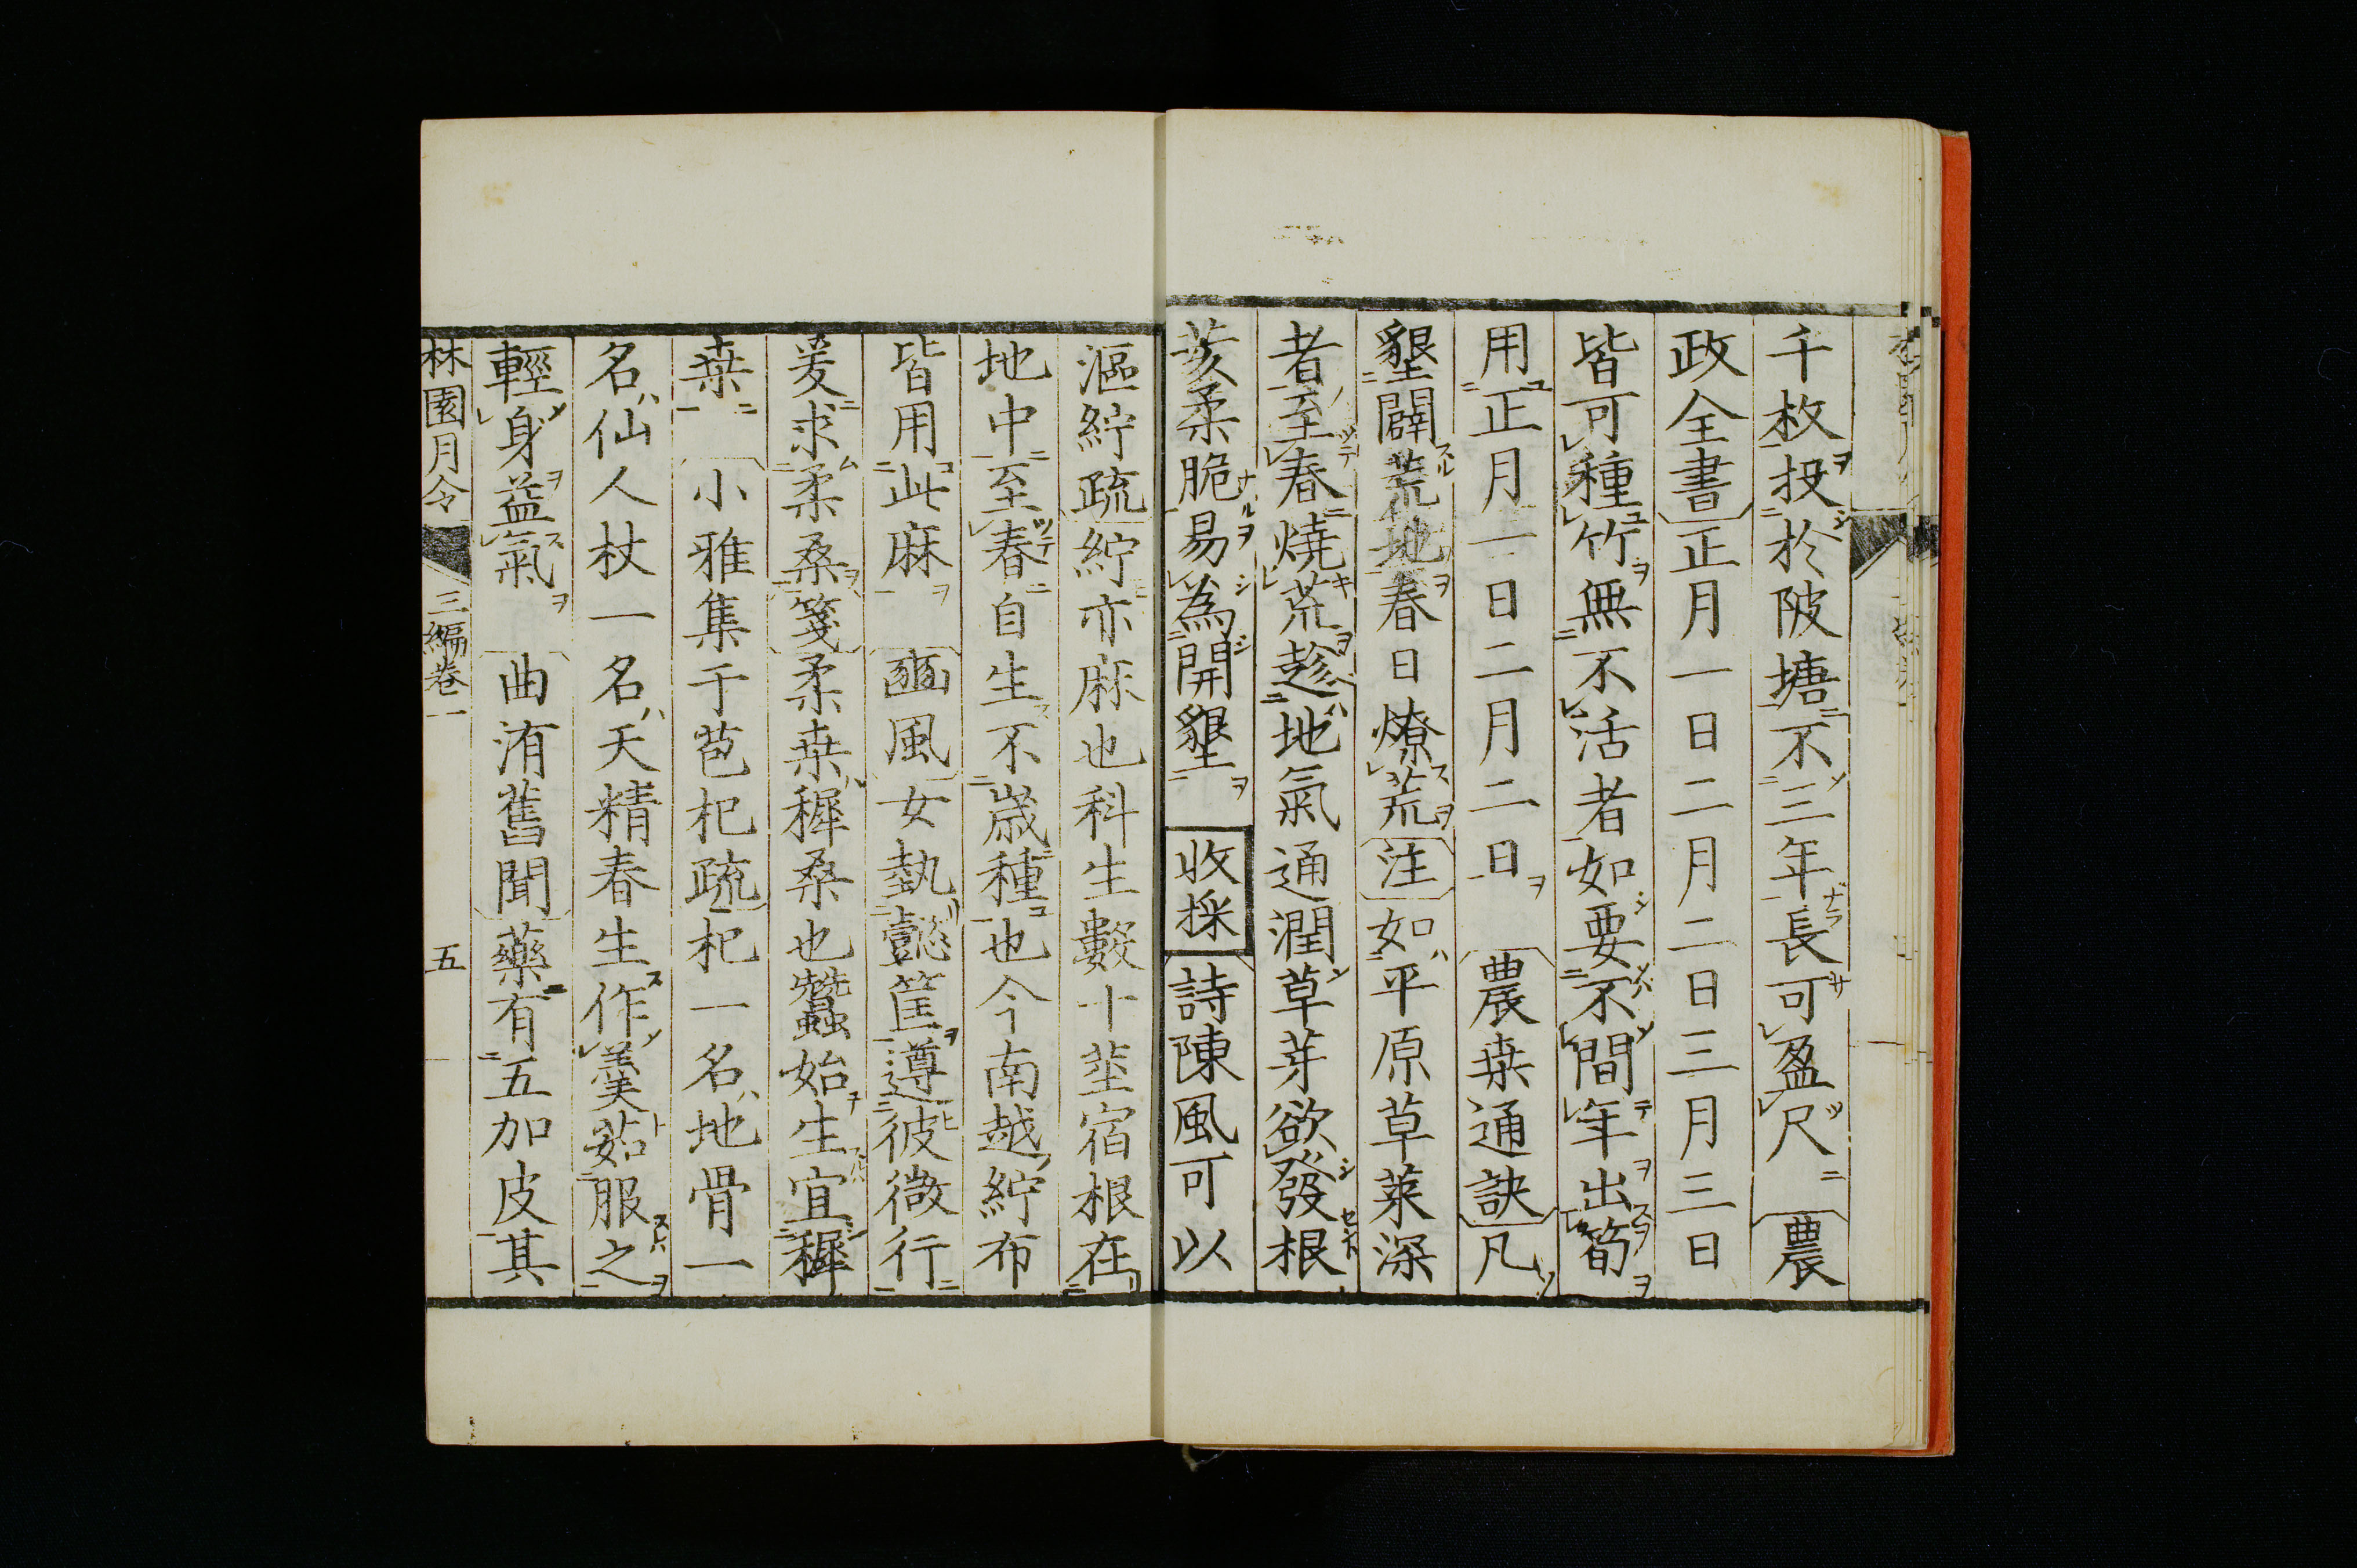 千枚投於陂塘不三年長可盈尺　農
政全書正月一日二月二日三月三日
皆可種竹無不活者如要不間年出筍
用正月一日二月二日　農桒通訣凡
墾闢荒地春日燎荒注如平原草萊深
者至春燒荒趂地氣通潤草芽欲發根
荄柔脆易為開墾　收採詩陳風可以
漚紵疏紵亦麻也科生數十莖宿根在
地中至春自生不歲種也今南越紵布
皆用此麻　豳風女執懿筐遵彼微行
爰求柔桑箋柔桒穉桑也蠶始生宜穉
桒　小雅集于苞杞疏杞一名地骨一
名仙人杖一名天精春生作羹茹服之
輕身益氣　曲洧舊聞藥有五加皮其
林園月令　三編卷一　五